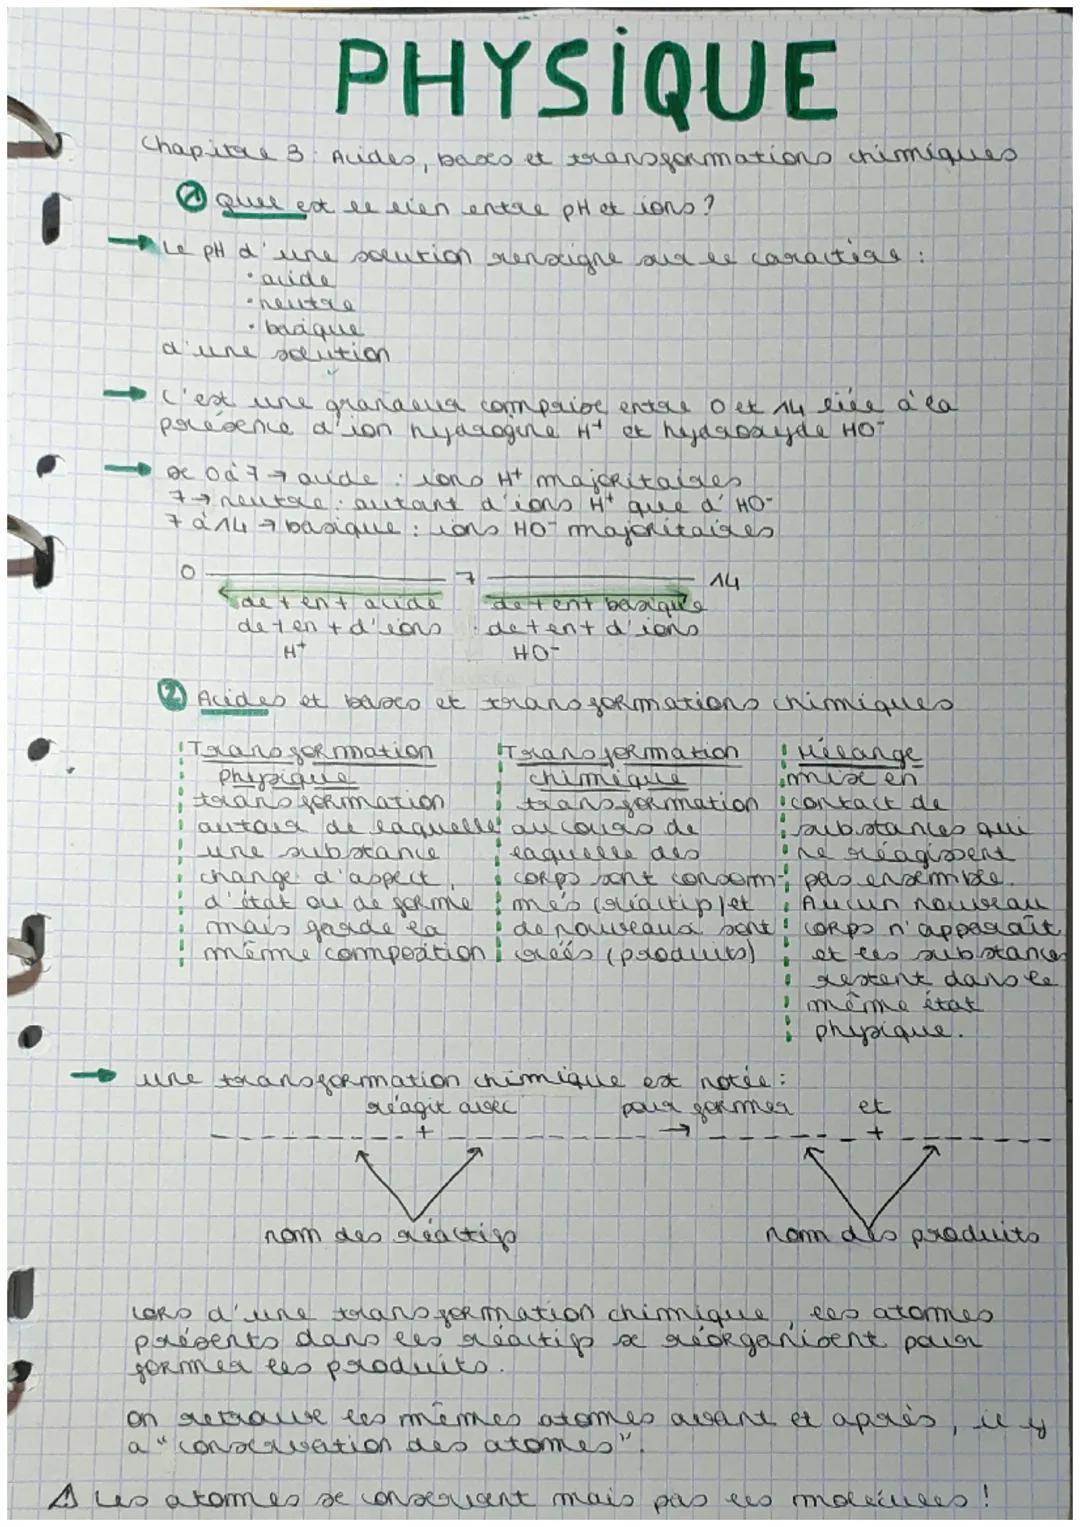 PHYSIQUE
Chapitre 3 : Acides, bases et transformations chimiques
1 Quel est le lien entre pH et ions ?
→ Le pH d'une solution renseigne sur le caractère :
• acide
• neutre
• basique
d'une solution
→ C'est une grandeur comprise entre 0 et 14 liée à la
présence d'ion hydrogène H+ et hydroxyde HO-
→ De 0 à 7 → acide : ions H+ majoritaires
7 → neutre : autant d'ions H+ que d'HO-
7 à 14 → basique : ions HO- majoritaires
0 7 14
de + en + acide de + en + basique
de + en + d'ions de + en + d'ions
H+ HO-
2 Acides et bases et transformations chimiques
Transformation
physique
transformation
autour de laquelle
une substance
change d'aspect,
d'état ou de forme
mais garde la
même composition
Transformation
chimique
transformation
au cours de
laquelle des
corps sont consom-
més (réactifs) et
de nouveaux sont
créés (produits)
Mélange
mise en
contact de
substances qui
ne réagissent
pas ensemble.
Aucun nouveau
corps n'apparaît
et les substances
restent dans le
même état
physique.
→ une transformation chimique est notée :
réagit avec pour former et
+ → +
nom des réactifs nom des produits
Lors d'une transformation chimique, les atomes
présents dans les réactifs se réorganisent pour
former les produits.
on retrouve les mêmes atomes avant et après, il y
a "conservation des atomes".
⚠ Les atomes se conservent mais pas les molécules !